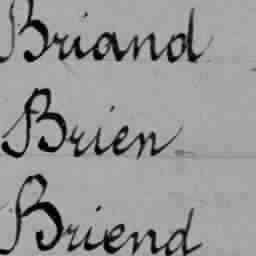 Briand
Brien
Briend